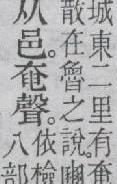 城東二里有奄
散在魯之說。豳
从邑。奄聲。依檢
八部